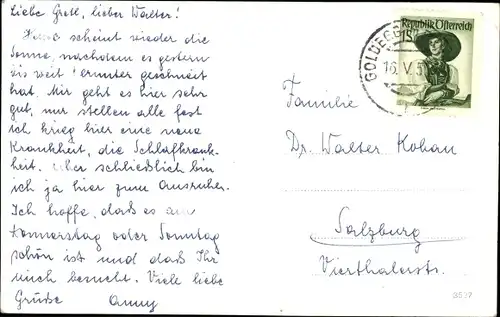 Liebe Gretl, lieber Walter!
Heute scheint wieder die
Sonne, nachdem es gestern
bis weit herunter geschneit
hat. Mir geht es hier sehr
gut, nur stellen alle fest
ich krieg hier eine neue
Krankheit, die Schlafkrank-
heit. Aber schließlich bin
ich ja hier zum Ausruhen.
Ich hoffe, daß es am
Donnerstag oder Sonntag
schön ist und daß Ihr
mich besucht. Viele liebe
Grüße Anny
Republik Österreich
1S
GOLDEGG
16.V.5
Familie
Dr. Walter Kohau
Salzburg
Vierthalerstr.
3597